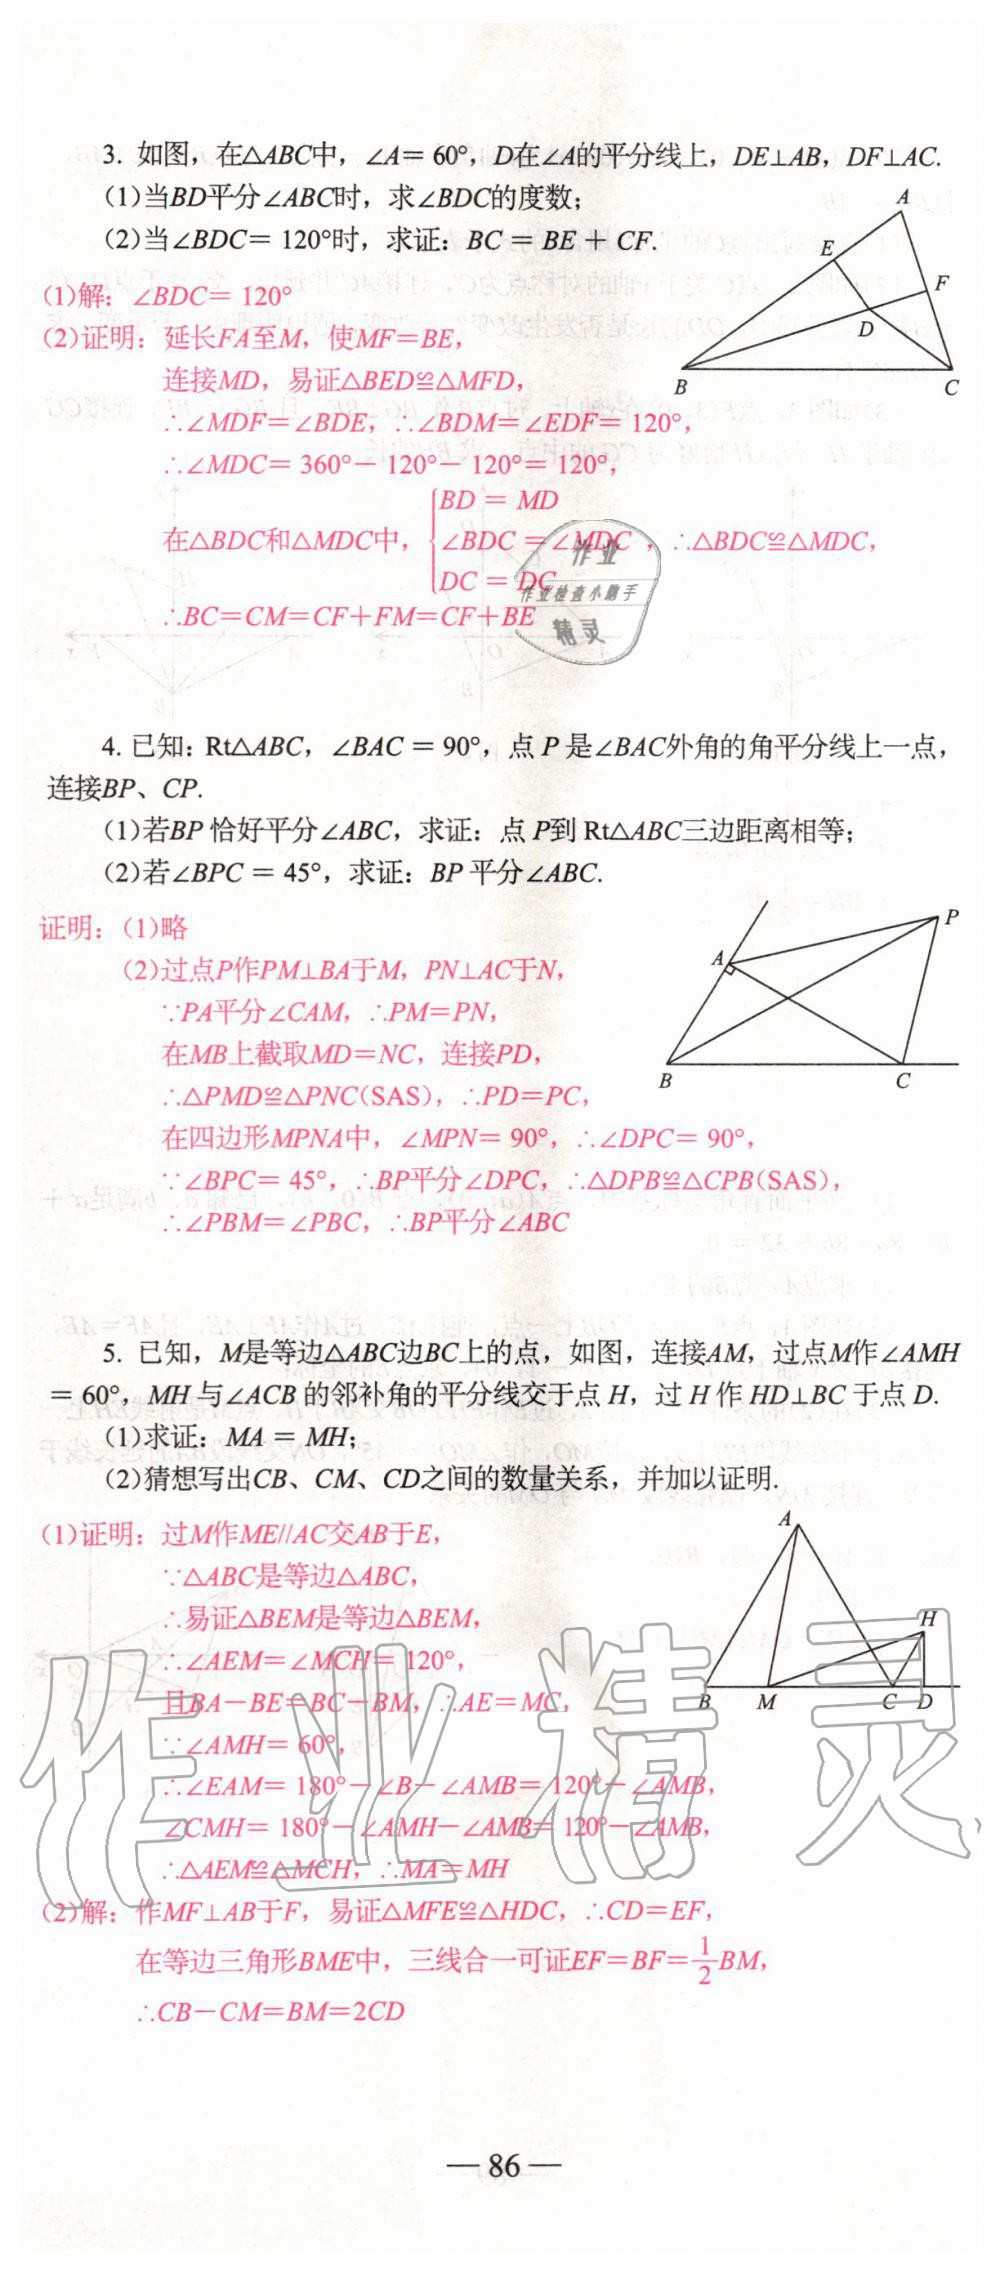 3. 如图，在△ABC中，∠A＝60°，D在∠A的平分线上，DE⊥AB，DF⊥AC.
(1)当BD平分∠ABC时，求∠BDC的度数；
(2)当∠BDC＝120°时，求证：BC＝BE＋CF.
A
E
F
D
B
C
(1)解：∠BDC＝120°
(2)证明：延长FA至M，使MF＝BE，
连接MD，易证△BED≌△MFD，
∴∠MDF＝∠BDE，∴∠BDM＝∠EDF＝120°，
∴∠MDC＝360°－120°－120°＝120°，
BD＝MD
在△BDC和△MDC中，∠BDC＝∠MDC，∴△BDC≌△MDC，
DC＝DC
∴BC＝CM＝CF＋FM＝CF＋BE
作业
作业检查小助手
精灵
4. 已知：Rt△ABC，∠BAC＝90°，点P是∠BAC外角的角平分线上一点，
连接BP、CP.
(1)若BP恰好平分∠ABC，求证：点P到Rt△ABC三边距离相等；
(2)若∠BPC＝45°，求证：BP平分∠ABC.
P
A
B
C
证明：(1)略
(2)过点P作PM⊥BA于M，PN⊥AC于N，
∵PA平分∠CAM，∴PM＝PN，
在MB上截取MD＝NC，连接PD，
∴△PMD≌△PNC(SAS)，∴PD＝PC，
在四边形MPNA中，∠MPN＝90°，∴∠DPC＝90°，
∵∠BPC＝45°，∴BP平分∠DPC，∴△DPB≌△CPB(SAS)，
∴∠PBM＝∠PBC，∴BP平分∠ABC
5. 已知，M是等边△ABC边BC上的点，如图，连接AM，过点M作∠AMH
＝60°，MH与∠ACB的邻补角的平分线交于点H，过H作HD⊥BC于点D.
(1)求证：MA＝MH；
(2)猜想写出CB、CM、CD之间的数量关系，并加以证明.
A
H
B
M
C
D
(1)证明：过M作ME//AC交AB于E，
∵△ABC是等边△ABC，
∴易证△BEM是等边△BEM，
∴∠AEM＝∠MCH＝120°，
且BA－BE＝BC－BM，∴AE＝MC，
∵∠AMH＝60°，
∴∠EAM＝180°－∠B－∠AMB＝120°－∠AMB，
∠CMH＝180°－∠AMH－∠AMB＝120°－∠AMB，
∴△AEM≌△MCH，∴MA＝MH
(2)解：作MF⊥AB于F，易证△MFE≌△HDC，∴CD＝EF，
在等边三角形BME中，三线合一可证EF＝BF＝1/2BM，
∴CB－CM＝BM＝2CD
作业精灵
— 86 —